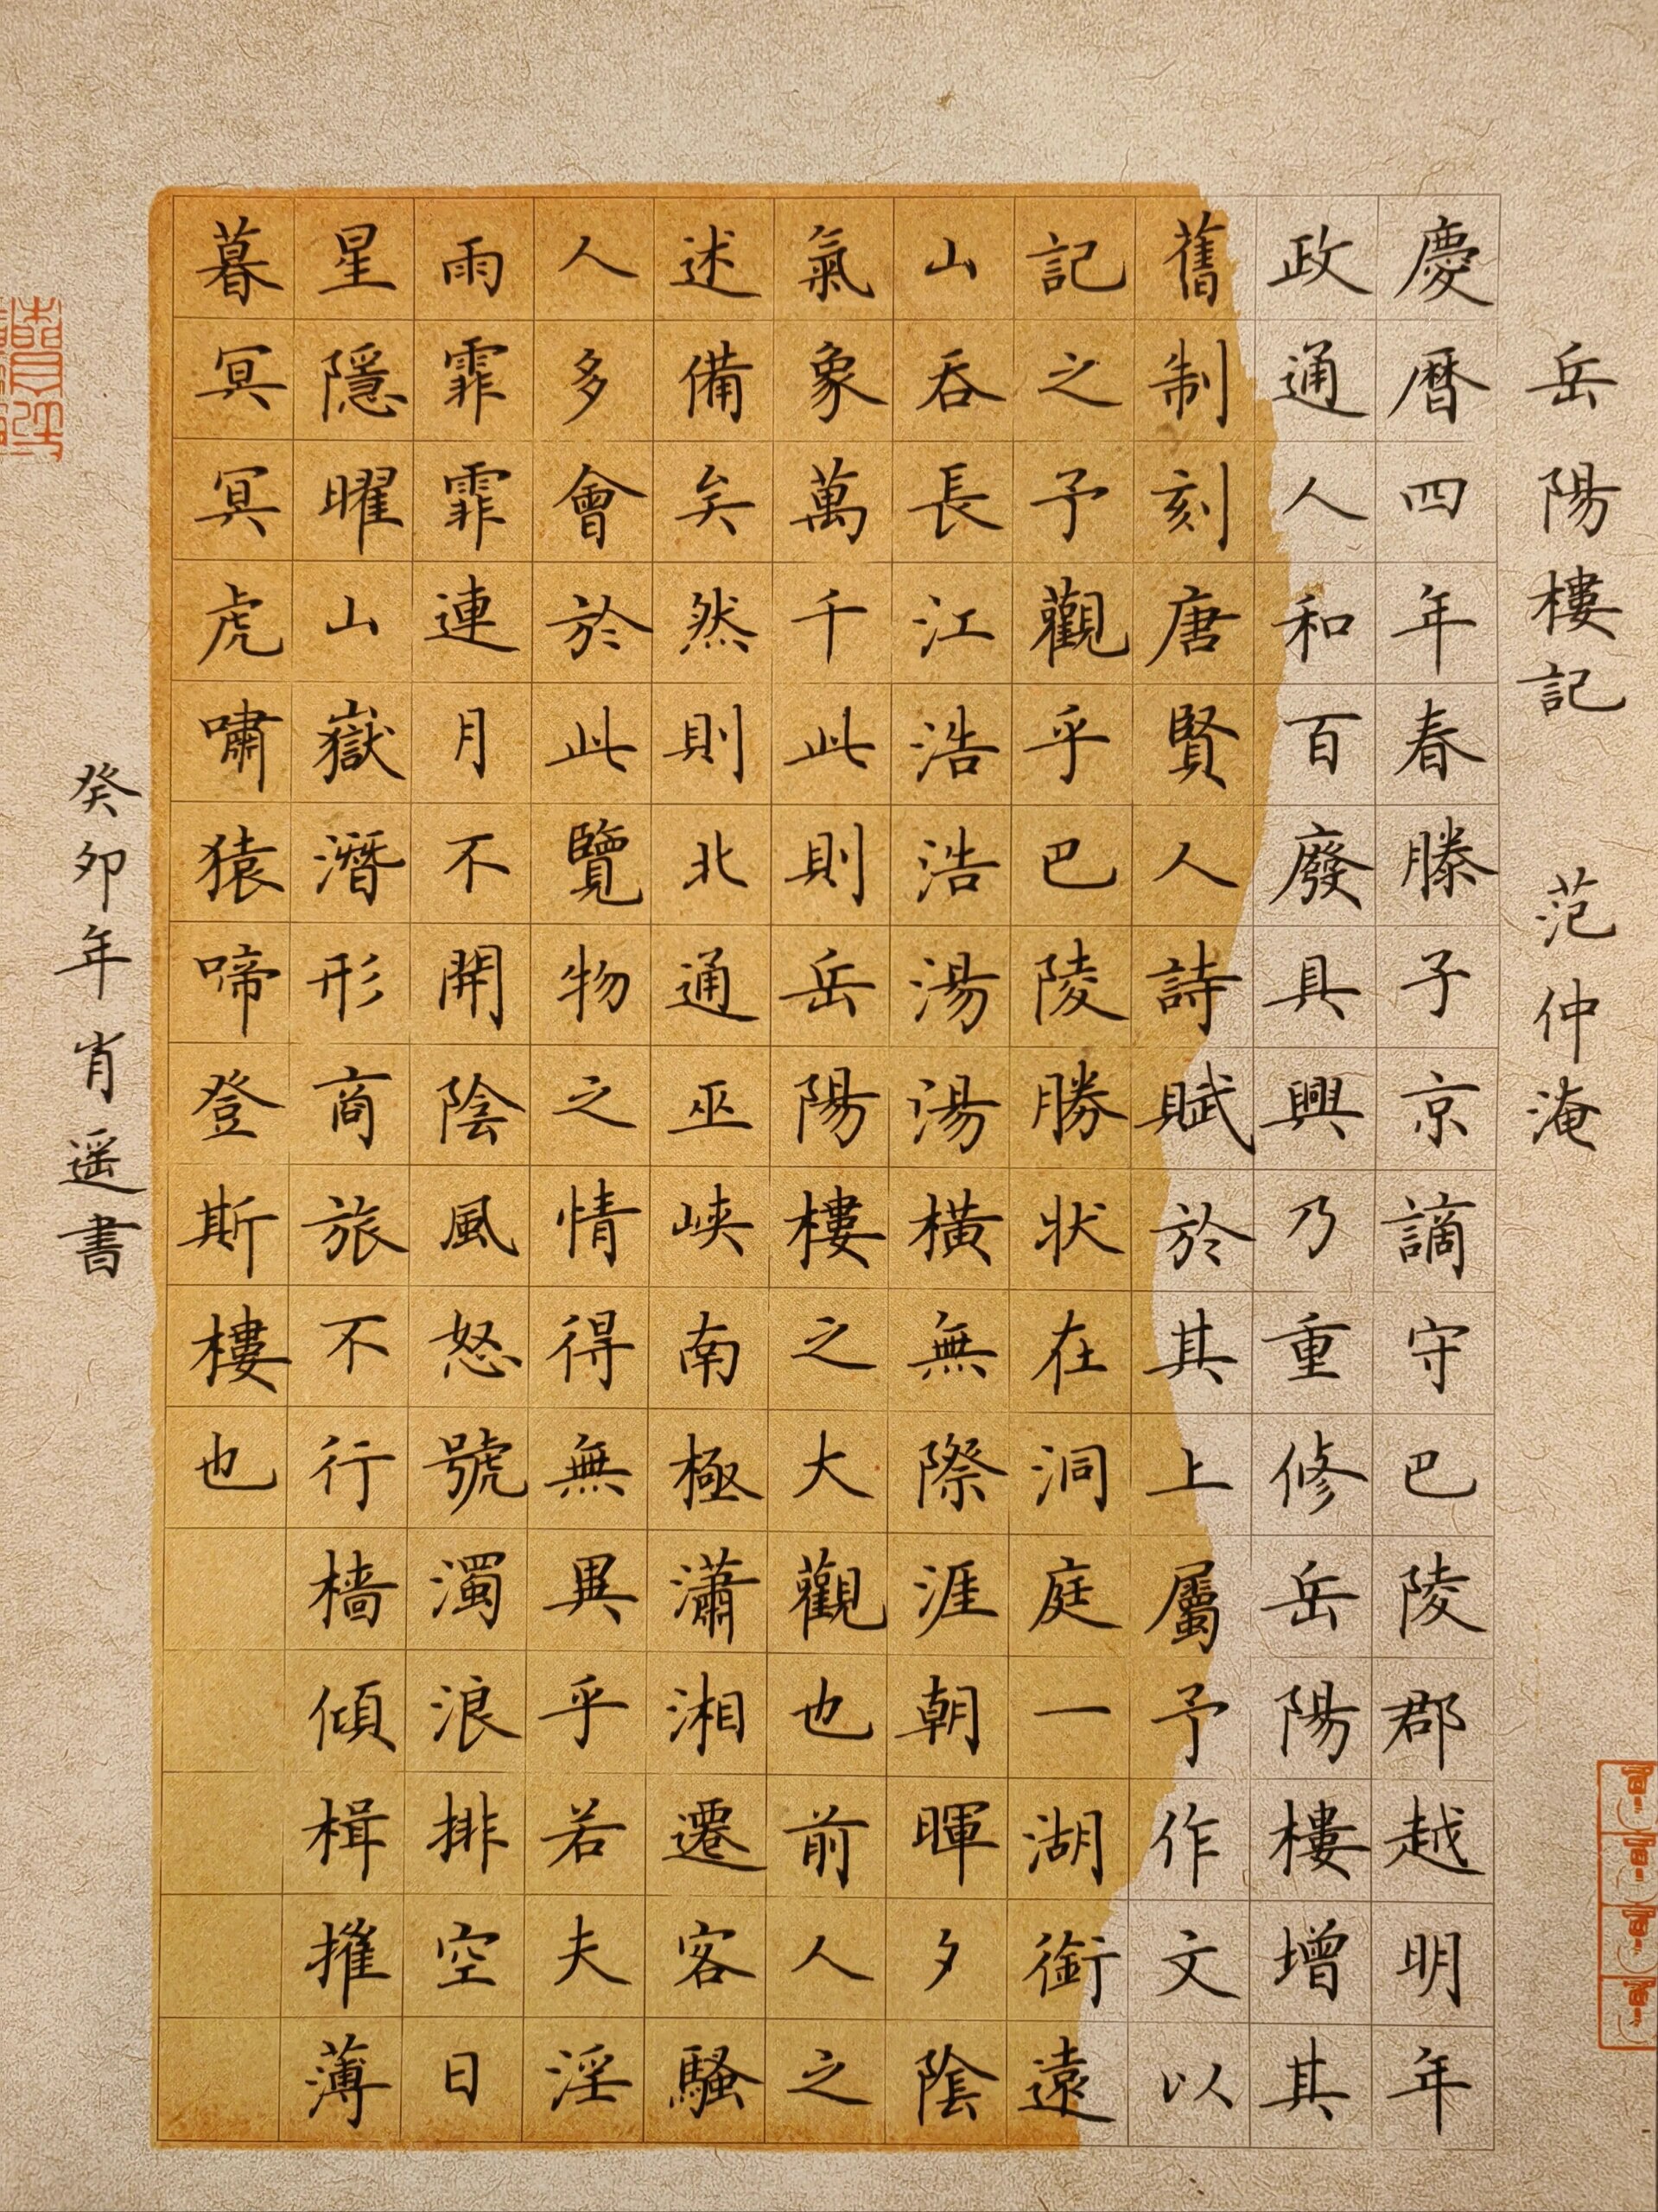 岳陽樓記 范仲淹
慶曆四年春滕子京謫守巴陵郡越明年
政通人和百廢具興乃重修岳陽樓增其
舊制刻唐賢人詩賦於其上屬予作文以
記之予觀乎巴陵勝狀在洞庭一湖銜遠
山吞長江浩浩湯湯橫無際涯朝暉夕陰
氣象萬千此則岳陽樓之大觀也前人之
述備矣然則北通巫峽南極瀟湘遷客騷
人多會於此覽物之情得無異乎若夫淫
雨霏霏連月不開陰風怒號濁浪排空日
星隱曜山嶽潛形商旅不行檣傾楫摧薄
暮冥冥虎嘯猿啼登斯樓也
癸卯年肖遥書